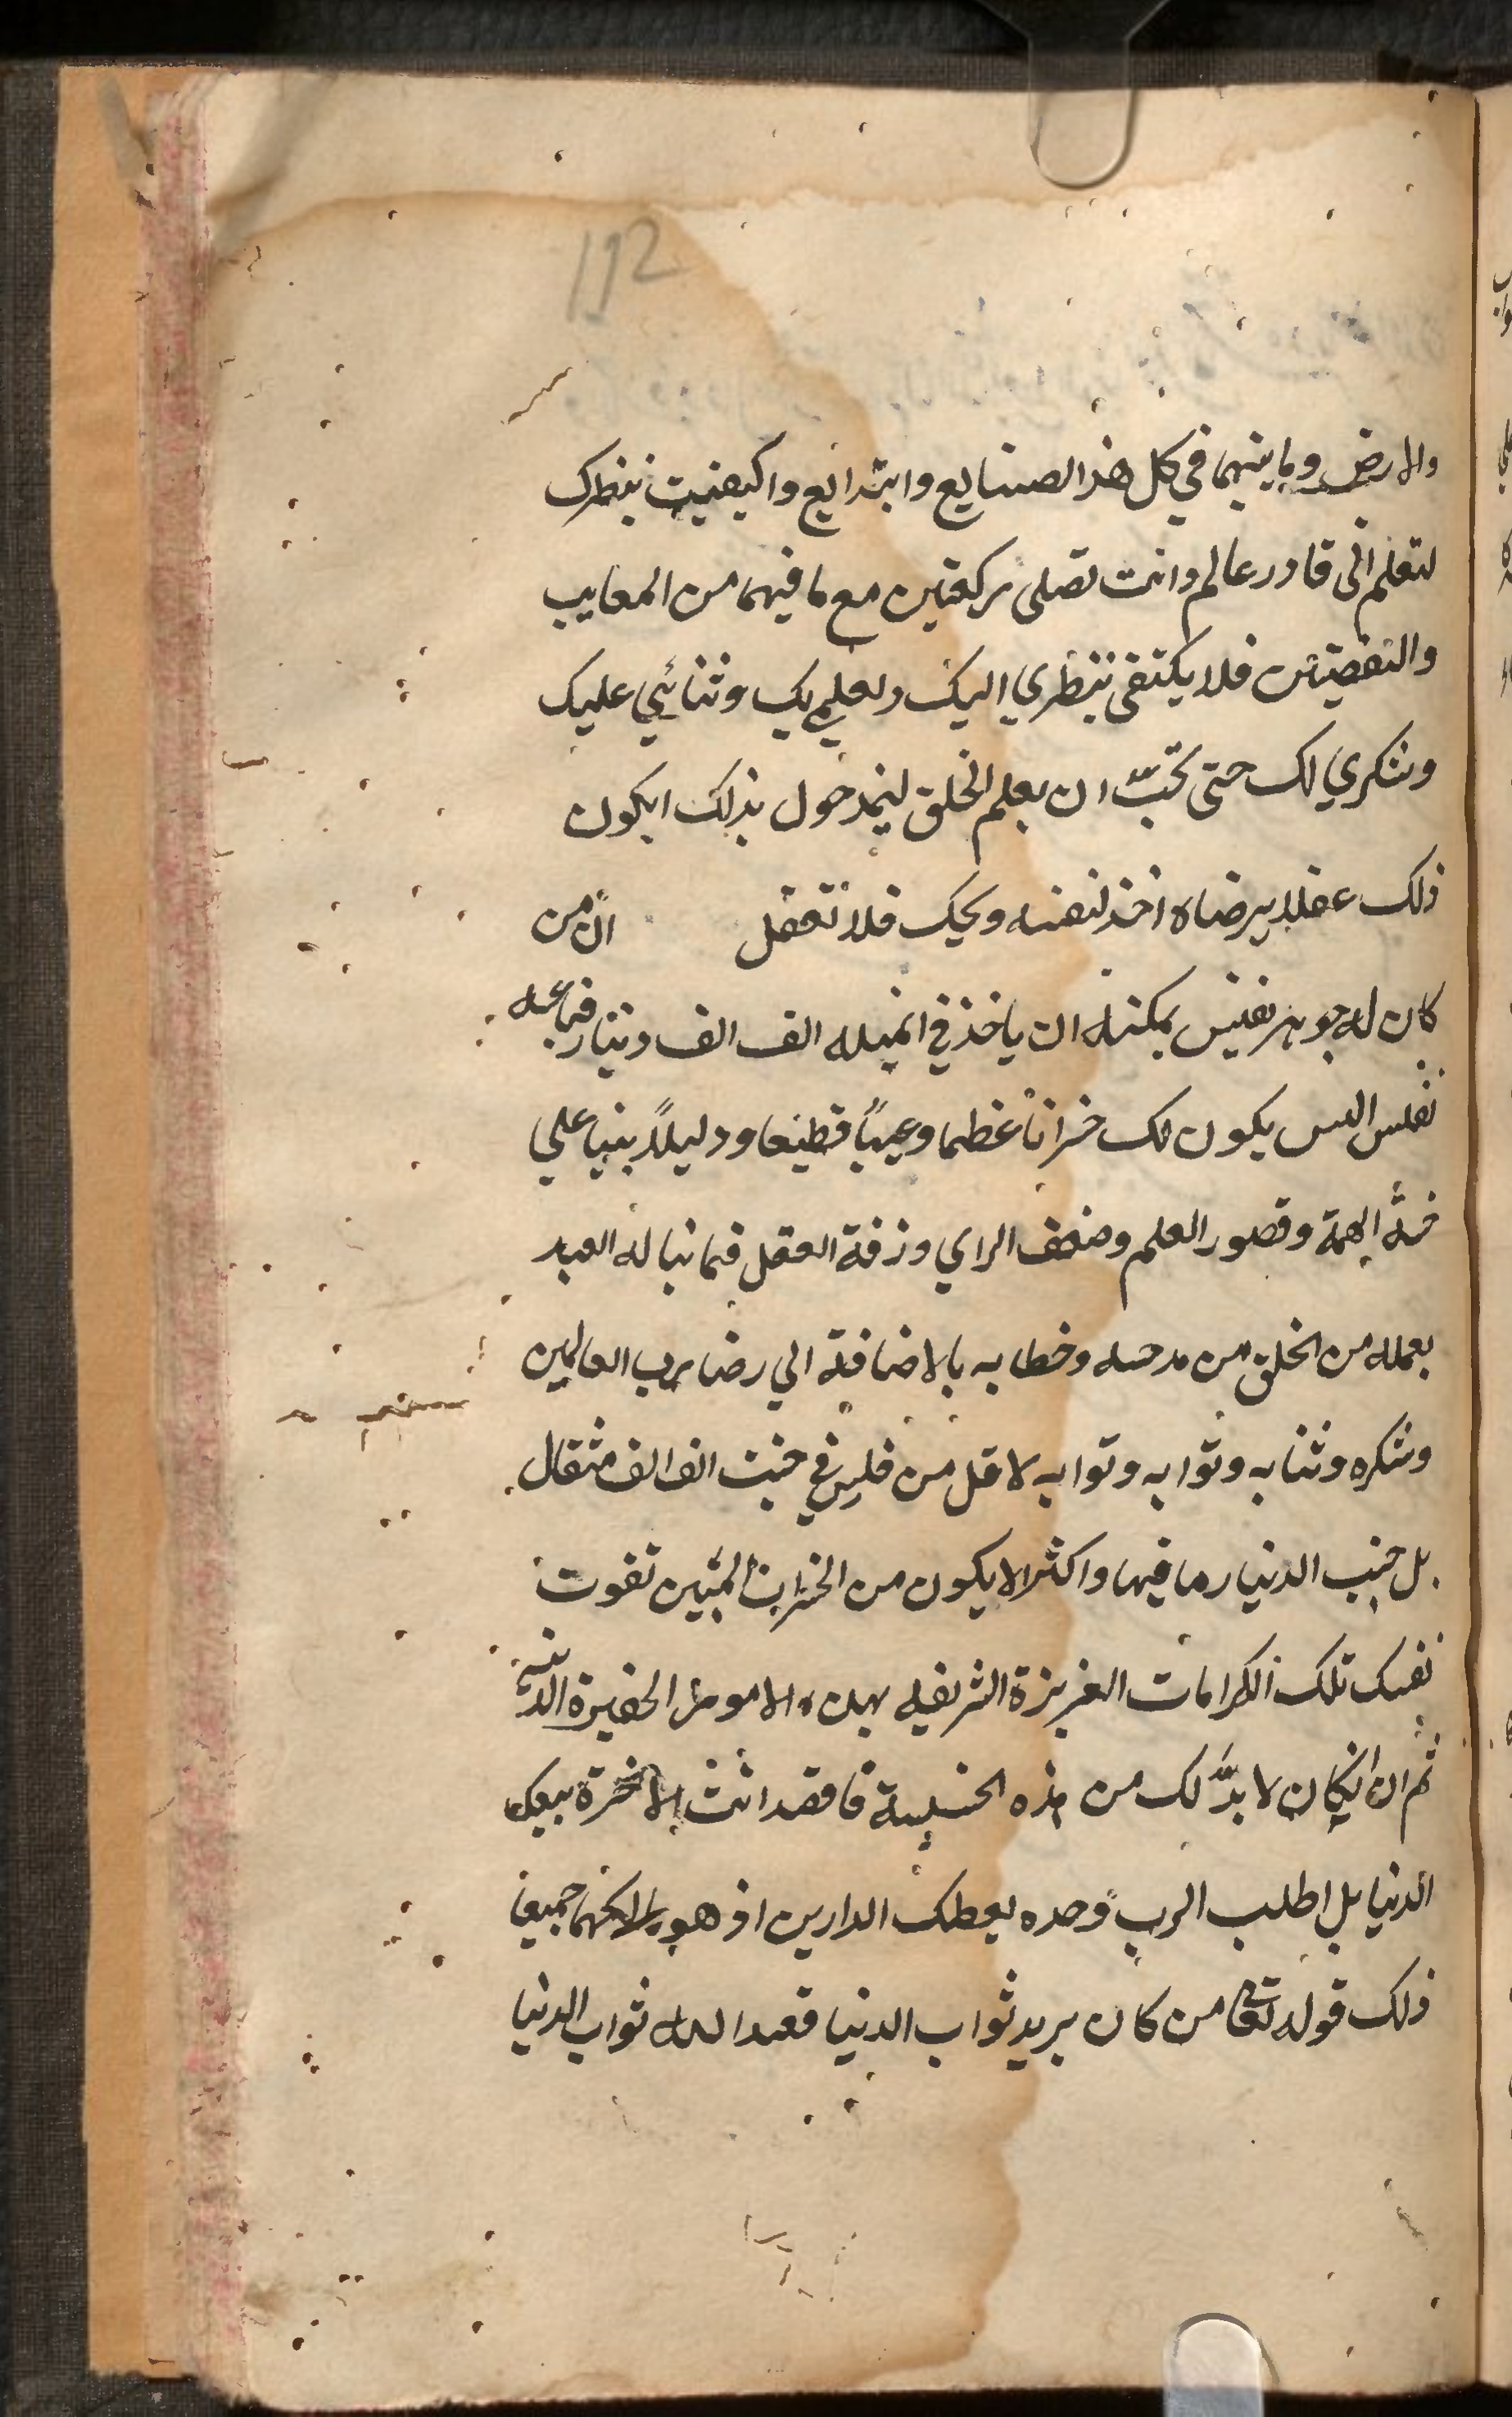 192
والارض وما بينهما في كل هذا الصنايع وابتدايع واكيفيت بنظرك
لتعلم انى قادر عالم وانت تصلى ركعتين مع ما فيهما من المعايب
والنقصيتن فلا يكتفى بنظري اليك ولعلمي بك وثنائي عليك
وشكري لك حتى تحبّ ان يعلم الخلق ليمدحول بذلك ايكون
ذلك عقلا يرضاه اخذ لنفسه ويحك فلا تعقل انّ من
كان له جوهر نفيس يمكنه ان ياخذ في الف الف دينار فباعه
بفلس اليس يكون لك خسرانا عظيما وعيبًا قطيعا ودليلاً بينا على
خسة الهمة وقصور العلم وضعف الراي وزفة العقل فما ينا له العبد
بعمله من الخلق من مدحه وخطابه بالاضافة الي رضا رب العالمين
وشكره وثنابه وثوابه وثوابه لاقل من فلس في جنب الف الف مثقال
بل جنب الدنيا وما فيها واكثر الا يكون من الخسران المبين تفوت
نفسك تلك الكرامات العزيزة الشريفه بهده الامور الحقيرة الدنية
ثم ان انكان لا بدّ لك من هذه الخسيسة فاقصد انت الاخرة يتبعك
الدنيا بل اطلب الرب وحده يعطك الدارين اذ هو مالكهما جميعا
ذلك قوله تعالى من كان يريد ثواب الدنيا فعند الله ثواب الدنيا